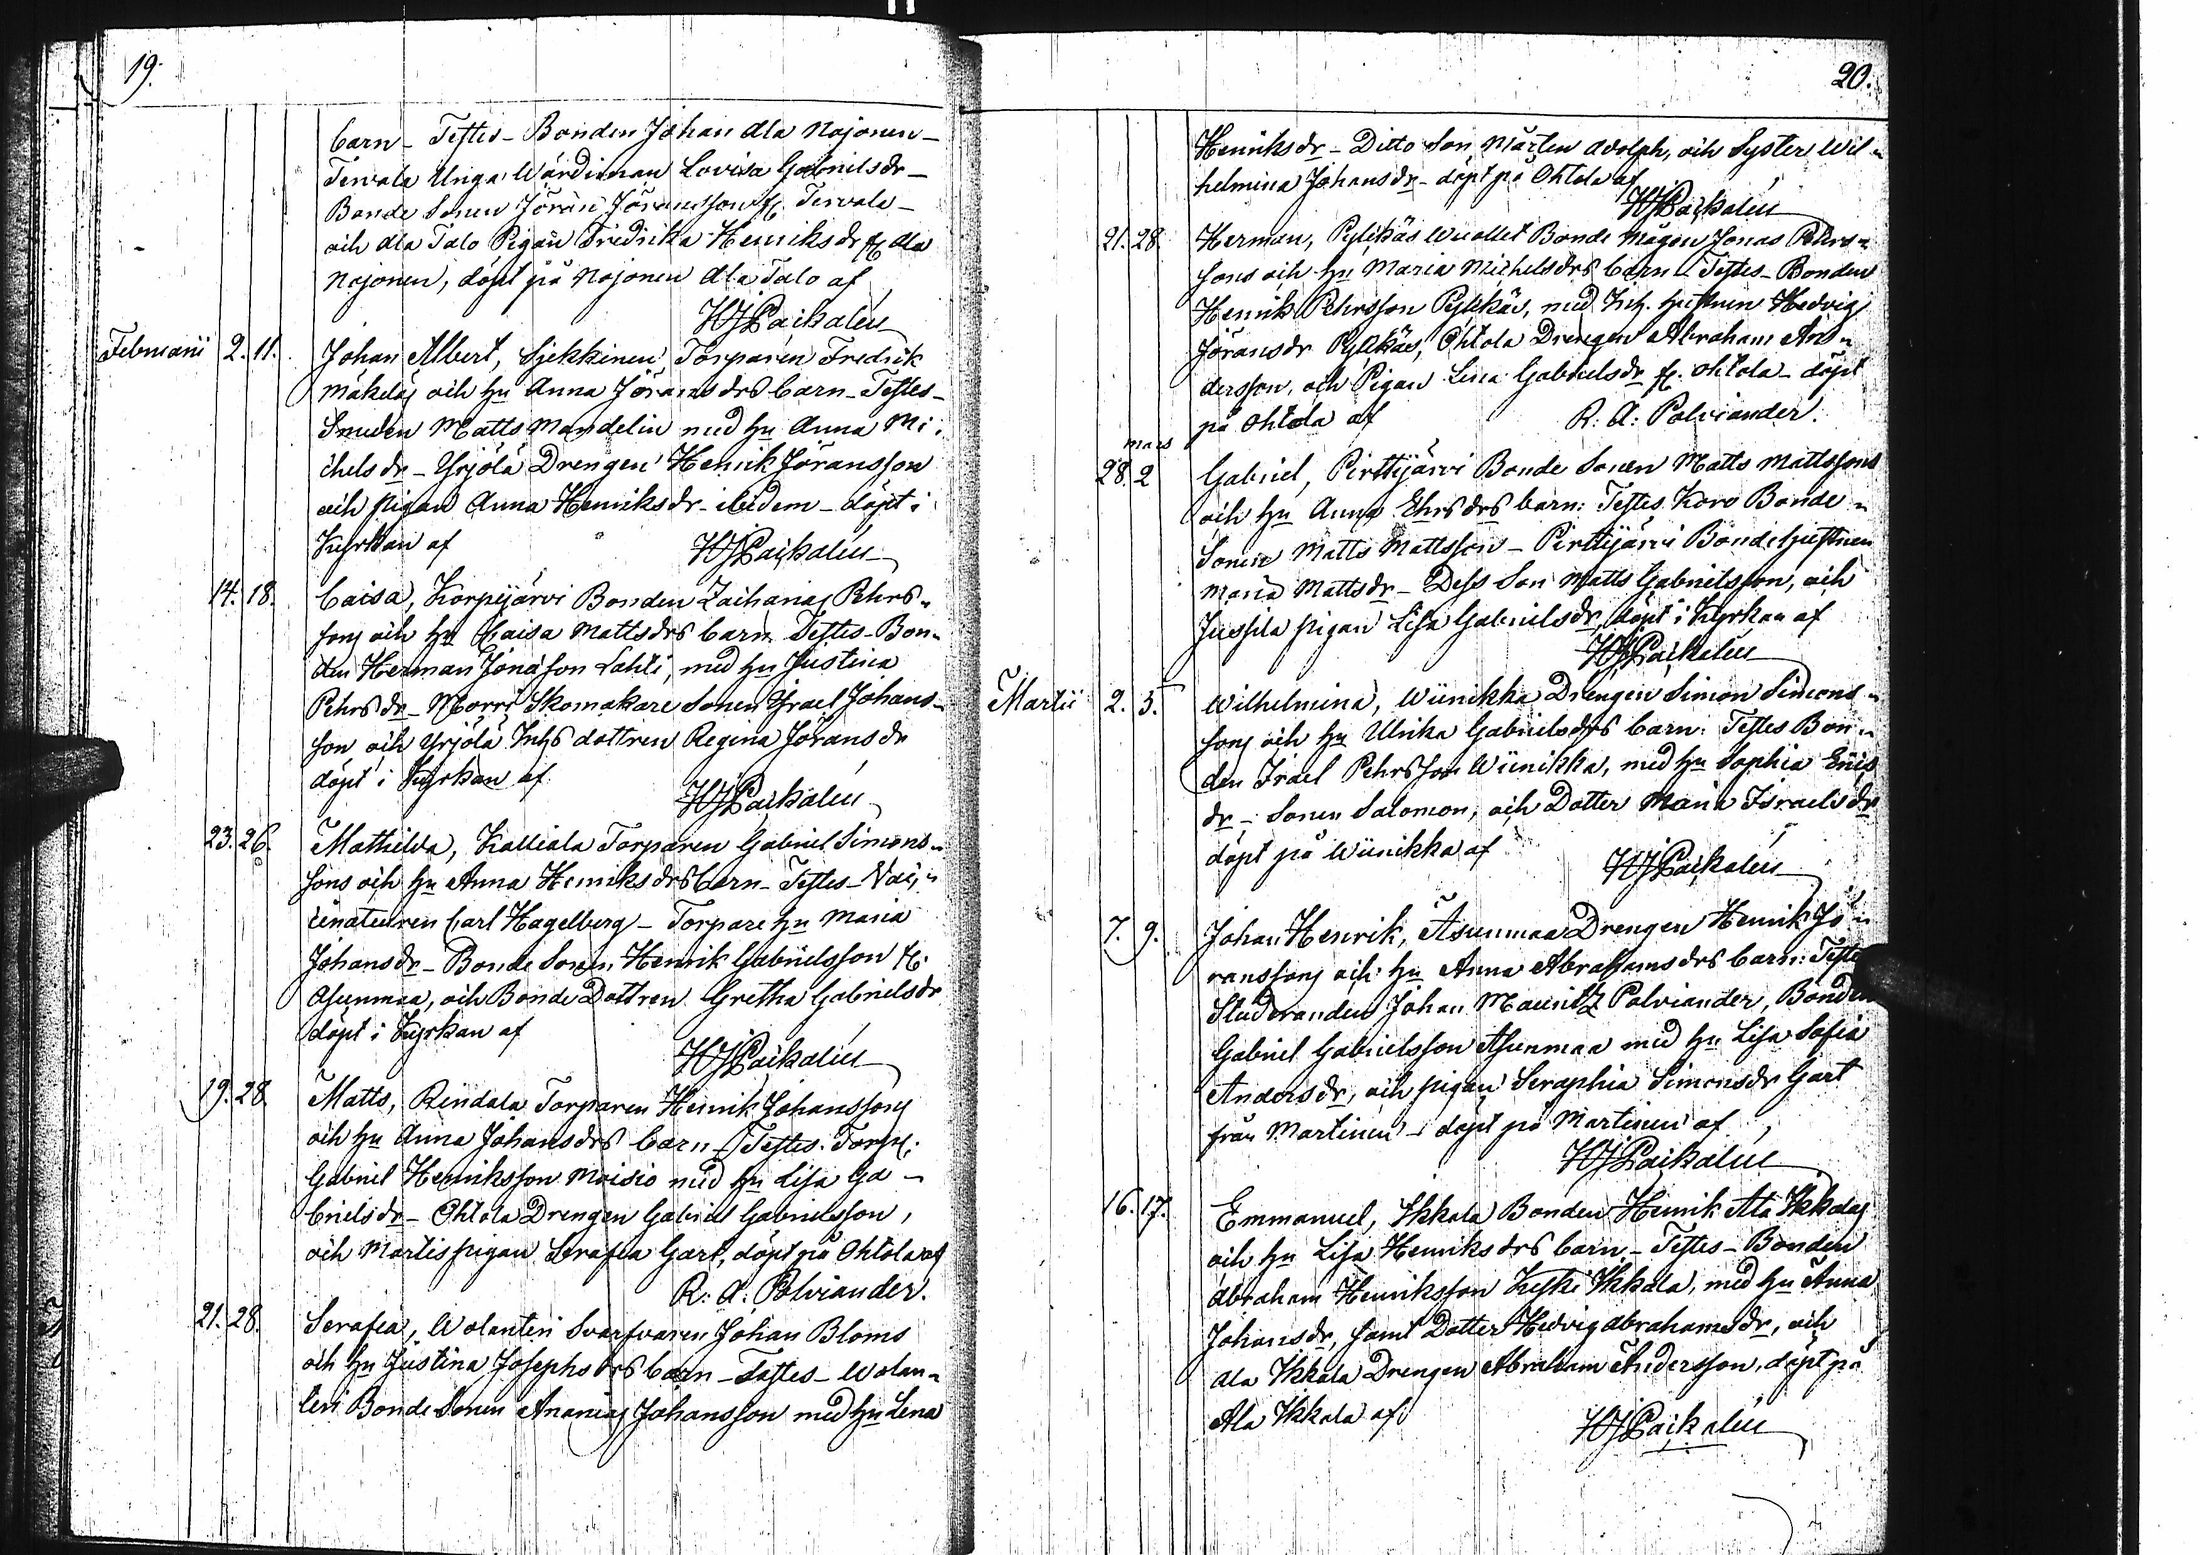 19.
barn – Testes – Bonden Johan Ala Nojonen –
Tervala Unga Wärdinnan Lovisa Gabrielsdr –
Bonde Sonen Jöran Jöransson fr. Tervala –
och Ala Talo Pigan Fredrika Henriksdr fr Ala
Nojonen, döpt på Nojonen Ala Talo af
HJPaikalén
Februarii 2. 11. Johan Albert, Torparen Fredrik
Mäkeläs och hu Anna Jöransdrs barn – Testes –
Smeden Matts Mandelin med hu Anna Mi-
chelsdr – Yrjölä Drengen Henrik Jöransson
och pigan Anna Henriksdr – ibidem – döpt i
Kyrkan af HJPaikalén
14. 18. Caisa, Korpijärvi Bonden Zacharias Pehrs-
sons och hu Caisa Mattsdrs barn Testes – Bon-
den Herman Jonasson Lahti, med hu Justina
Pehrsdr – Morri Skomakare Sonen Israel Johans-
son och Yrjölä Inhs dottren Regina Jöransdr
döpt i Kyrkan af
HJPaikalén
23. 26. Mathilda, Kalliala Torparen Gabriel Simons-
sons och hu Anna Henriksdrs barn – Testes – Vac-
cinateuren Carl Hagelberg – Torpare hu Maria
Johansdr – Bonde Sonen Henrik Gabrielsson fr.
Asunmaa, och Bonde Dottren Gretha Gabrielsdr
döpt i Kyrkan af
HJPaikalén
19. 28. Matts, Rendala Torparen Henrik Johanssons
och hu Anna Johansdrs barn Testes. Torp:
Gabriel Henriksson Moisio med hu Lisa Ga-
brielsdr – Ohtola Drengen Gabriel Gabrielsson,
och Martis pigan Serafia Gart, döpt på Ohtola af
R: A: Polviander.
21. 28. Serafia, Wolanteri Svarfvaren Johan Bloms
och hu Justina Josephsdrs barn – Testes – Wolan-
teri Bonde Sonen Ananias Johansson med hu Lena
20.
Henriksdr – Ditto Son Mårten Adolph, och Syster Wil-
helmina Johansdr – döpt på Ohtola af
HJPaikalén
21. 28. Herman, Pylkäs Wuollet Bonde Mågen Jonas Pehrs-
sons och hu Maria Michelsdrs barn – Testes – Bonden
Henrik Pehrsson Pylkäs, med Inh. hustrun Hedvig
Jöransdr Pylkäs, Ohtola Drengen Abraham An-
dersson, och Pigan Lena Gabrielsdr fr. Ohtola – döpt
på Ohtola af R: A: Polviander.
mars
28. 2 Gabriel, Pirttijärvi Bonde Sonen Matts Mattssons
och hu Anna Ehrsdrs barn: Testes Koro Bonde-
Sonen Matts Mattsson – Pirttijärvi Bondehustrun
Maria Mattsdr – Dess Son Matts Gabrielsson, och
Jussila pigan Lisa Gabrielsdr, döpt i Kyrkan af
HJPaikalén
Martii 2. 5. Wilhelmina, Wiinikka Drengen Simon Simons-
sons och hu Ulrika Gabrielsdrs barn: Testes Bon-
den Israel Pehrsson Wiinikka, med hu Sophia Erics
dr – Sonen Salomon, och Dotter Maria Israelsdr
döpt på Wiinikka af
HJPaikalén
7. 9. Johan Henrik, Asunmaa Drengen Henrik Jö-
ranssons och hu Anna Abrahamsdrs barn: Testes
Studeranden Johan Mauritz Polviander, Bonden
Gabriel Gabrielsson Asunmaa med hu Lisa Sofia
Andersdr, och pigan Seraphia Simonsdr Gart
från Martinen – döpt på Martinen af
HJPaikalén
16. 17. Emmanuel, Ikkala Bonden Henrik Ala Ikkalas
och hu Lisa Henriksdrs barn – Testes – Bonden
Abraham Henriksson Keski Ikkala, med hu Anna
Johansdr, samt Dotter Hedvig Abrahamsdr, och
Ala Ikkala Drengen Abraham Andersson, döpt på
Ala Ikkala af HJPaikalén